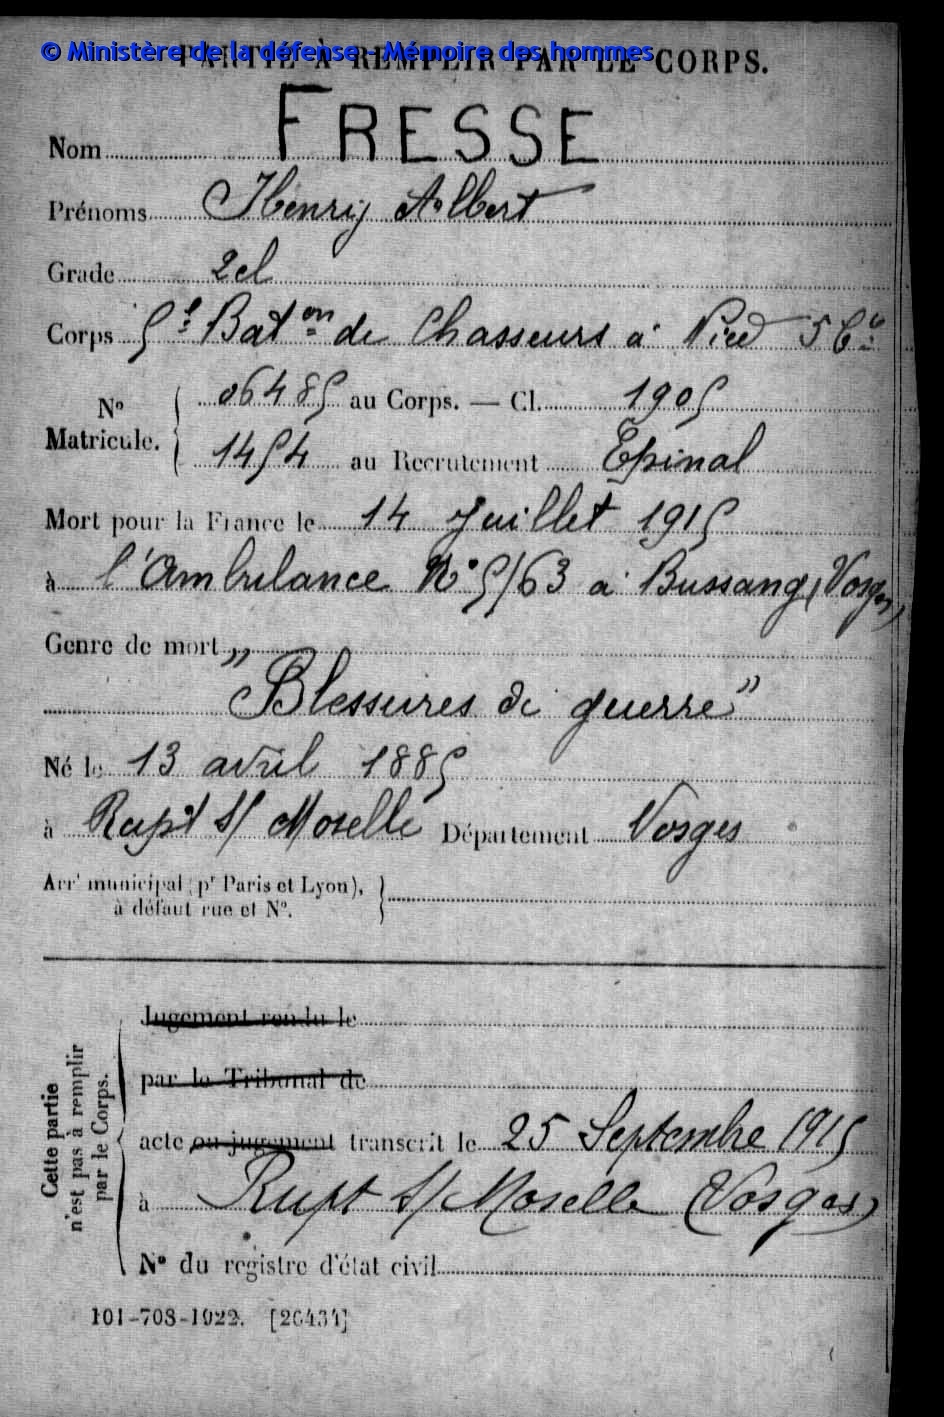 © Ministère de la défense - Mémoire des hommes
PARTIE À REMPLIR PAR LE CORPS.
Nom FRESSE
Prénoms Henry Albert
Grade 2cl
Corps 5e Baton de Chasseurs à Pied 5 Cie
No Matricule. 06485 au Corps. — Cl. 1905
1454 au Recrutement Epinal
Mort pour la France le 14 Juillet 1915
à l'Ambulance No 5/63 à Bussang (Vosges)
Genre de mort
"Blessures de guerre"
Né le 13 avril 1885
à Rupt s/ Moselle Département Vosges
Arrt municipal (pr Paris et Lyon),
à défaut rue et No.
Cette partie
n'est pas à remplir
par le Corps.
Jugement rendu le
par le Tribunal de
acte ou jugement transcrit le 25 Septembre 1915
à Rupt s/ Moselle (Vosges)
No du registre d'état civil
101-708-1922. [26434]